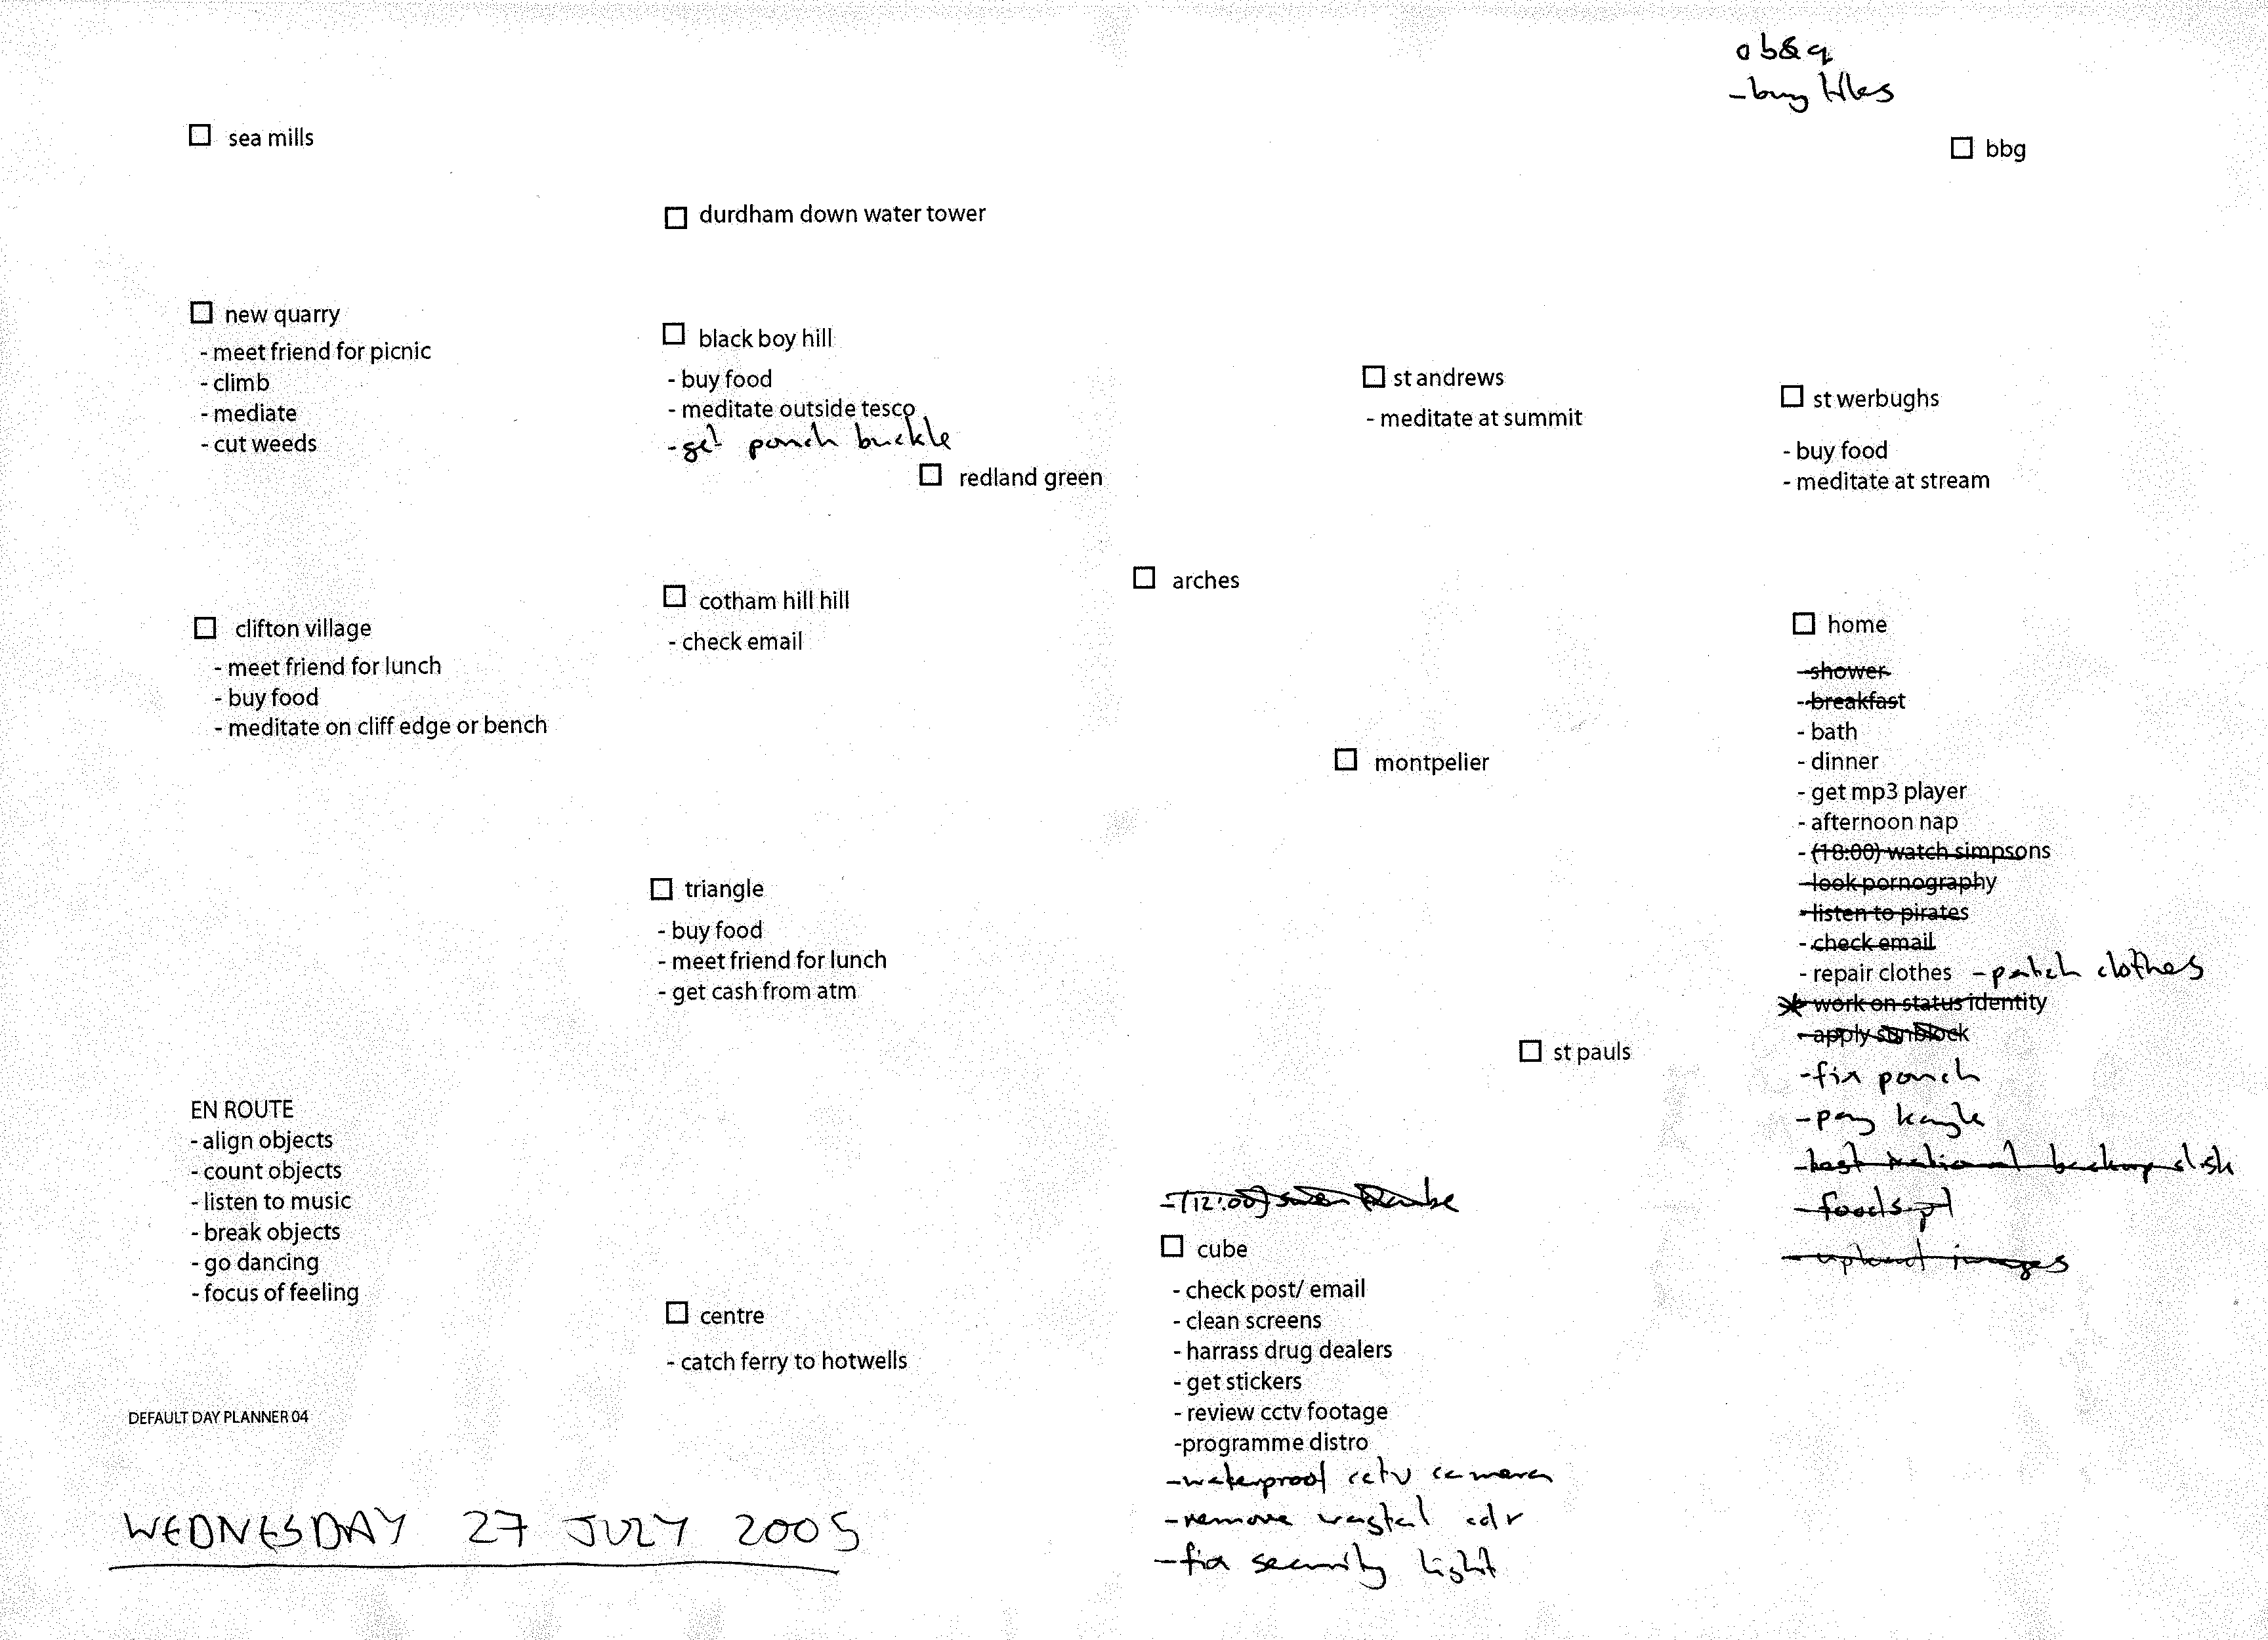 o b&q
- buy tiles
sea mills
bbg
durdham down water tower
new quarry
- meet friend for picnic
- climb
- mediate
- cut weeds
black boy hill
- buy food
- meditate outside tesco
- get pouch buckle
redland green
st andrews
- meditate at summit
st werbughs
- buy food
- meditate at stream
arches
clifton village
- meet friend for lunch
- buy food
- meditate on cliff edge or bench
cotham hill hill
- check email
montpelier
home
- shower
- breakfast
- bath
- dinner
- get mp3 player
- afternoon nap
- (18:00) watch simpsons
- look pornography
- listen to pirates
- check email
- repair clothes - patch clothes
- work on status identity
- apply sunblock
- fix pouch
- pay kayle
- backup disk
- foods pl
- upload images
triangle
- buy food
- meet friend for lunch
- get cash from atm
st pauls
EN ROUTE
- align objects
- count objects
- listen to music
- break objects
- go dancing
- focus of feeling
centre
- catch ferry to hotwells
- (12:00)
cube
- check post/ email
- clean screens
- harrass drug dealers
- get stickers
- review cctv footage
-programme distro
- waterproof cctv camera
- remove cdr
- fix security light
DEFAULT DAY PLANNER 04
WEDNESDAY 27 JULY 2005